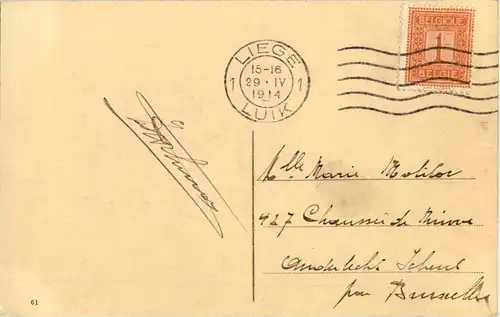 LIEGE
1 15-16 1
29 · IV
1914
LUIK
BELGIQUE
1
BELGIË
Mlle Marie Molitor
427 Chaussée de Ninove
Anderlecht Scheut
par Bruxelles
61